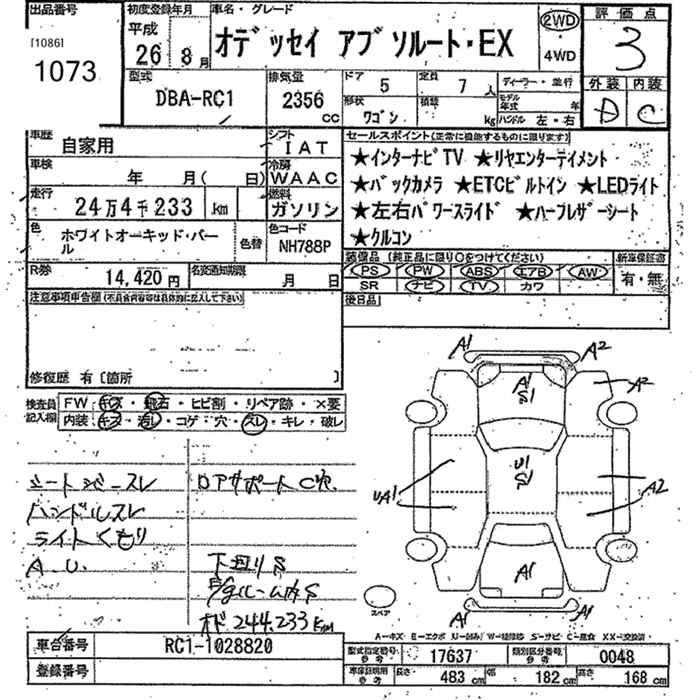 出品番号
[1086]
1073
初度登録年月
平成
26 年 8 月
車名・グレード
オデッセイ アブソルート・EX
2WD
4WD
評価点
3
型式
DBA-RC1
排気量
2356 CC
ドア 5
定員 7 人
形状 ワゴン
積載 kg
ディーラー・並行
モデル年式 年
ハンドル 左・右
外装 内装
D C
車歴
自家用
シフト
IAT
セールスポイント(正常に機能するものに限ります)
車検
年 月( 日)
冷房
WAAC
★インターナビTV ★リヤエンターテイメント
★バックカメラ ★ETCビルトイン ★LEDライト
★左右パワースライド ★ハーフレザーシート
★クルコン
走行
24万4千233 km
燃料
ガソリン
色
ホワイトオーキッド・パール
色替
色コード
NH788P
装備品(純正品に限り○をつけてください)
新車保証書
PS PW ABS エアB AW
SR ナビ TV カワ
有・無
R券
14,420円
名変通知期限
月 日
後日品
注意事項申告欄(不具合内容等は具体的に記入して下さい)
修復歴 有〔箇所 〕
検査員記入欄
FW：キズ・飛石・ヒビ割・リペア跡・×要
内装：キズ・汚レ・コゲ・穴・スレ・キレ・破レ
シートシワースレ
ハンドルスレ
ライトくもり
A.U.
ロアサポートC穴
下回りS
E/gルーム内S
オド244.233km
A1 A2
A1
S1
A2
U1
S1
UA1
A2
A1
A1 A1
スペア
A-キズ E-エクボ U-凹み W-補修跡 S-サビ C-腐食 XX-交換済
車台番号
RC1-1028820
登録番号
型式指定番号 参考
17637
類別区分番号 参考
0048
車庫証明用 参考
長さ 483 cm
幅 182 cm
高さ 168 cm